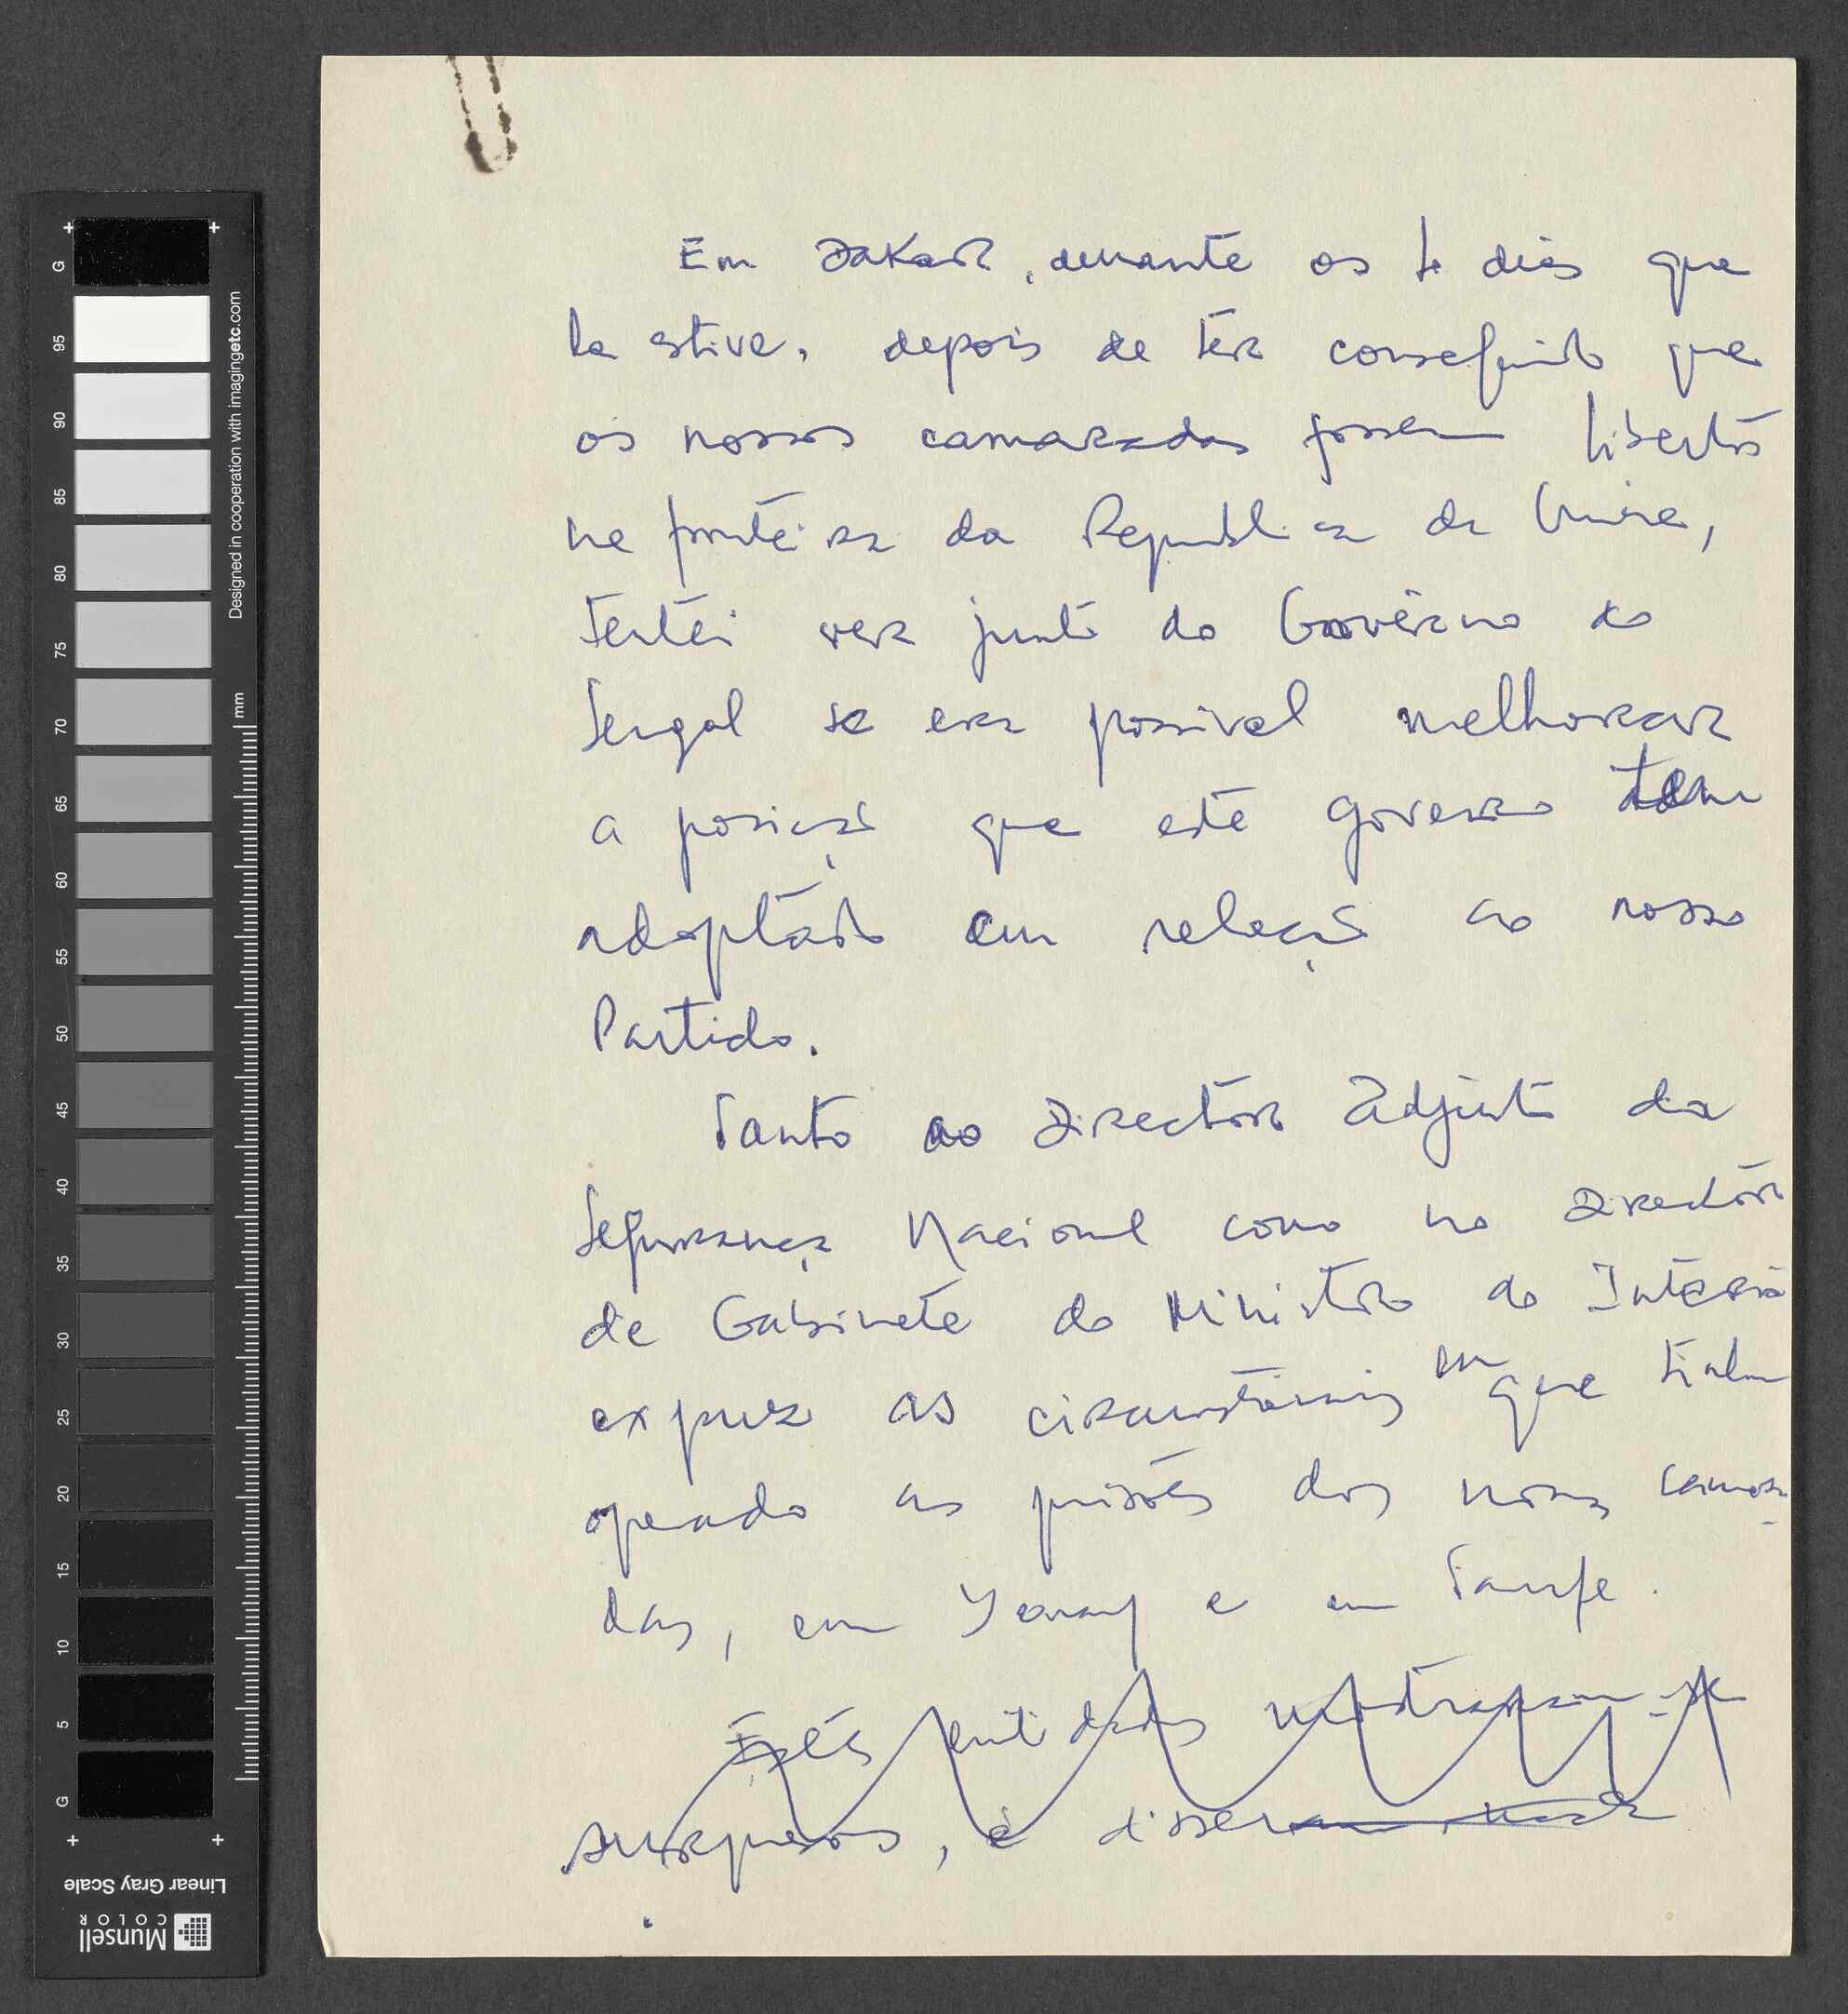 Em Dakar, durante os 4 dias que
la estive, depois de ter conseguido que
os nossos camaradas fossem libertos
na fronteira da Republica da Guiné,
tentei ver junto do Govêrno do
Senegal se era possivel melhorar
a posição que este governo tem
adoptado em relação ao nosso
Partido.
Tanto ao Director Adjunto da
Segurança Nacional como no Director
de Gabinete do Ministro do Interior
expuz as circunstancias em que tinham
operado as prisões dos nossos camara-
das, em e em
Estas entidades mostraram-se
surpresas, e disseram
G
95
90
85
80
75
70
65
60
55
50
45
40
35
30
25
20
15
10
5
G
mm
Designed in cooperation with imagingetc.com
Linear Gray Scale
Munsell
COLOR